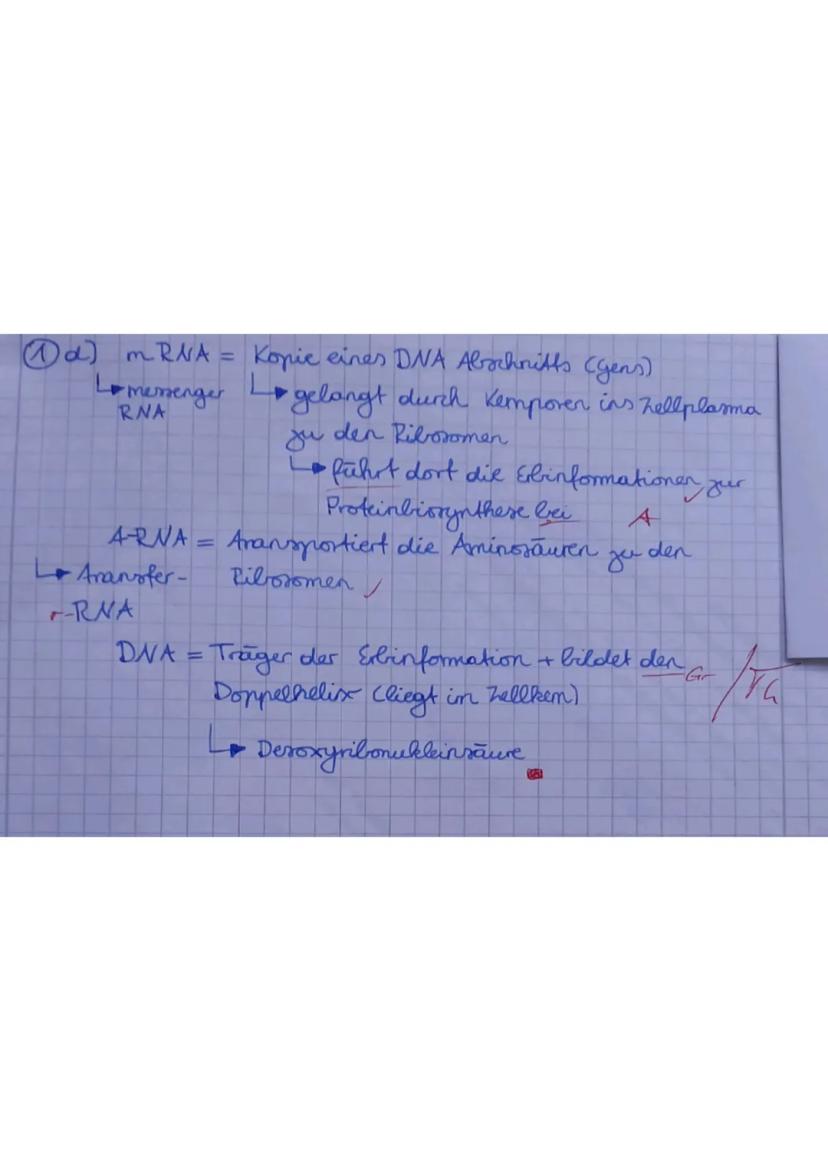 ① d) mRNA = Kopie eines DNA Abschnitts (Gens)
↳ messenger RNA
↳ gelangt durch Kernporen ins Zellplasma
zu den Ribosomen
↳ führt dort die Erbinformationen zur
Proteinbiosynthese bei A
t-RNA = transportiert die Aminosäuren zu den
↳ Transfer- Ribosomen
r-RNA
DNA = Träger der Erbinformation + bildet den Gr
Doppelhelix (liegt im Zellkern)
↳ Desoxyribonukleinsäure